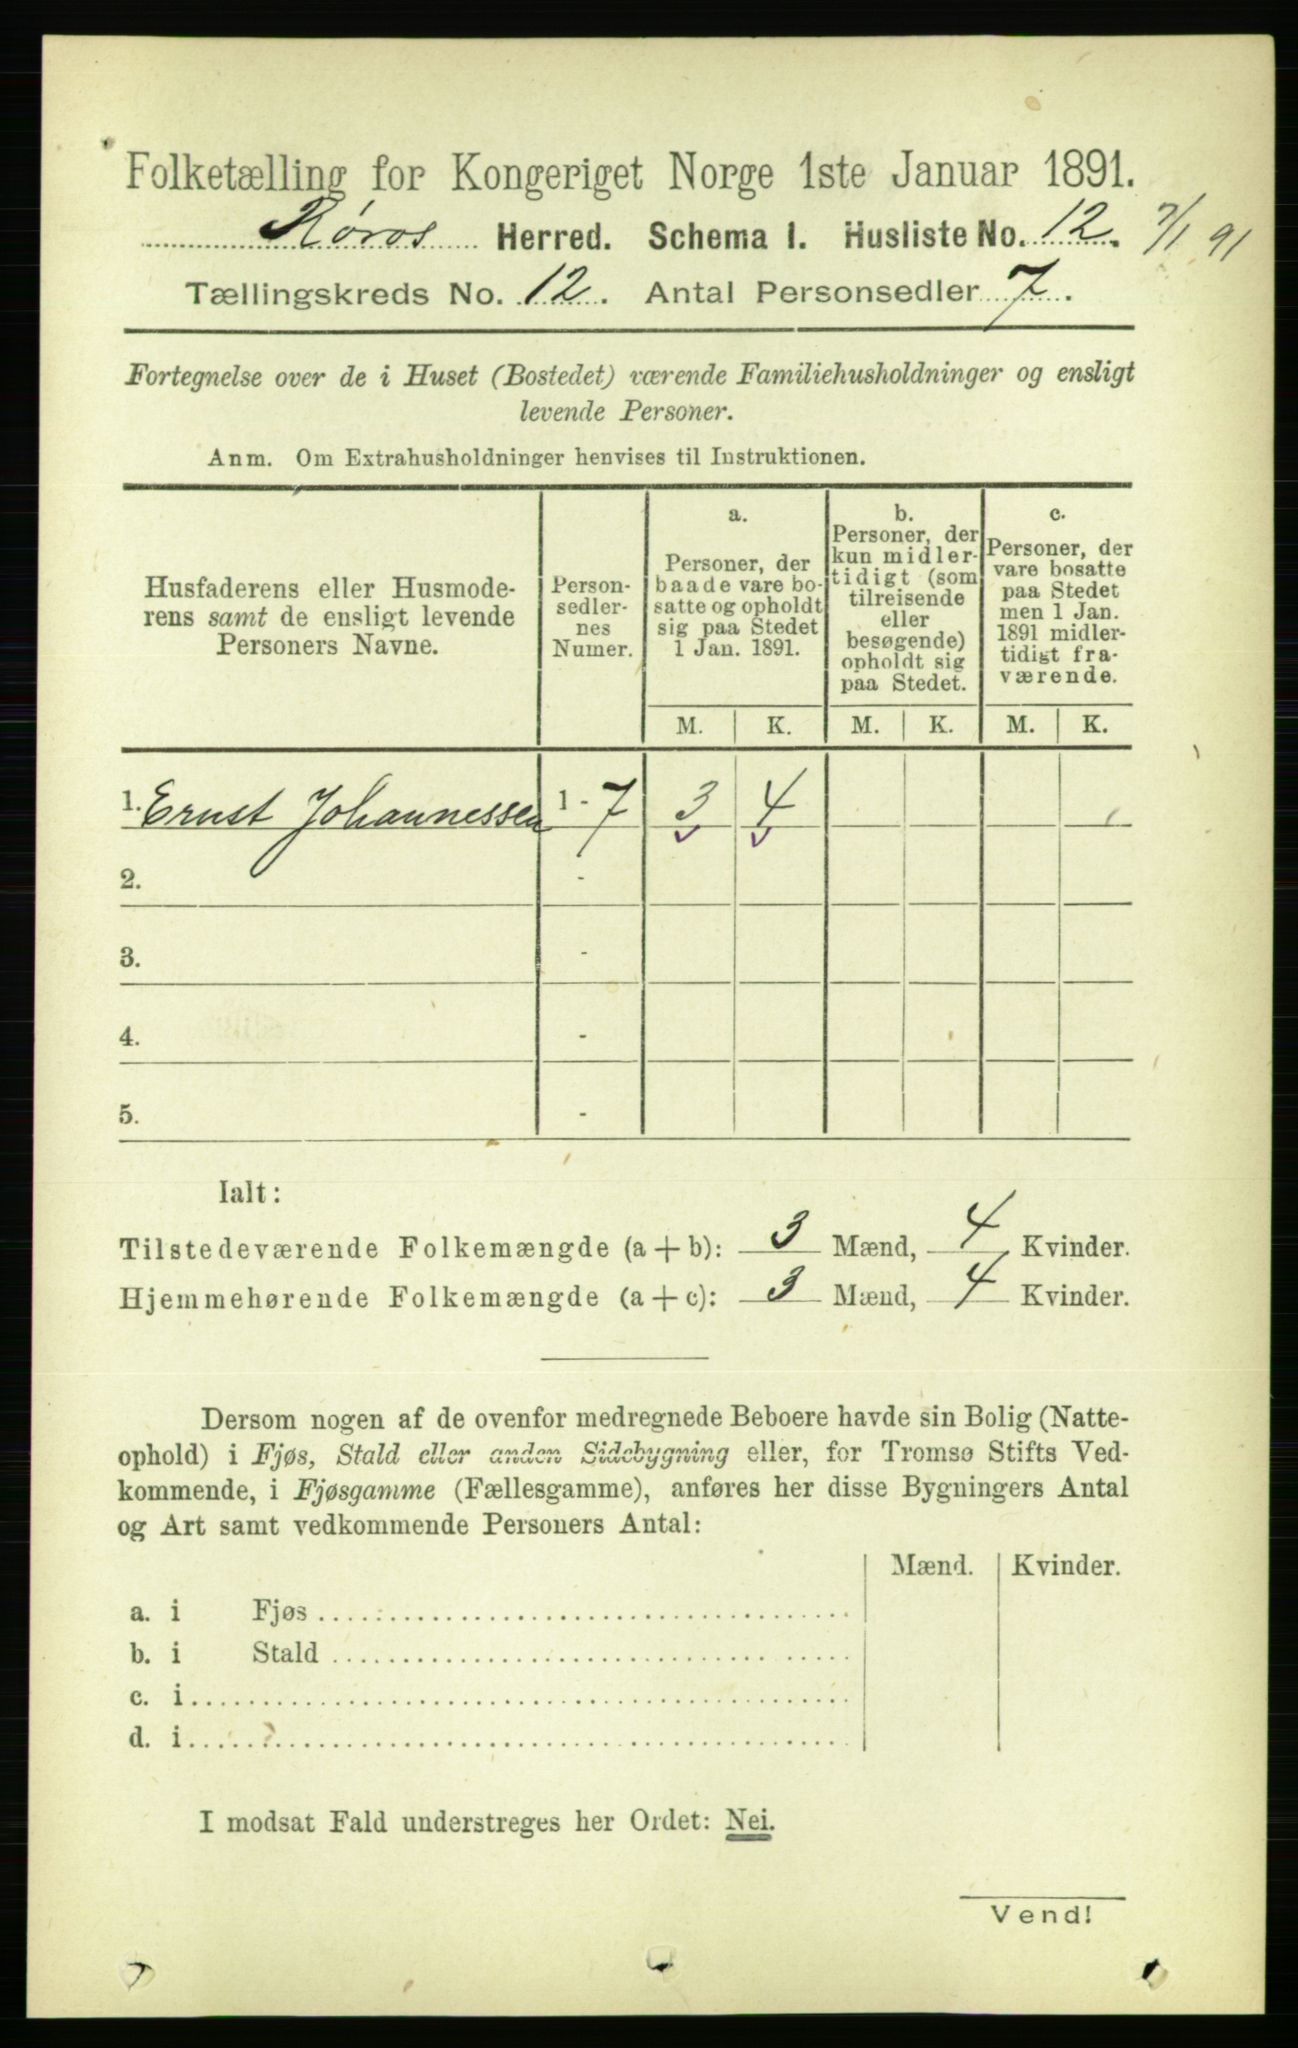 Folketælling for Kongeriget Norge 1ste Januar 1891.
Røros Herred. Schema I. Husliste No. 12. 7/1 91
Tællingskreds No. 12. Antal Personsedler 7.
Fortegnelse over de i Huset (Bostedet) værende Familiehusholdninger og ensligt
levende Personer.
Anm. Om Extrahusholdninger henvises til Instruktionen.
Husfaderens eller Husmode-
rens samt de ensligt levende
Personers Navne.
Person-
sedler-
nes
Numer.
a.
Personer, der
baade vare bo-
satte og opholdt
sig paa Stedet
1 Jan. 1891.
b.
Personer, der
kun midler-
tidigt (som
tilreisende
eller
besøgende)
opholdt sig
paa Stedet.
c.
Personer, der
vare bosatte
paa Stedet
men 1 Jan.
1891 midler-
tidigt fra-
værende.
M. K. M. K. M. K.
1. Ernst Johannessen 1 - 7 3 4
2. -
3. -
4. -
5. -
Ialt:
Tilstedeværende Folkemængde (a + b): 3 Mænd, 4 Kvinder.
Hjemmehørende Folkemængde (a + c): 3 Mænd, 4 Kvinder.
Dersom nogen af de ovenfor medregnede Beboere havde sin Bolig (Natte-
ophold) i Fjøs, Stald eller anden Sidebygning eller, for Tromsø Stifts Ved-
kommende, i Fjøsgamme (Fællesgamme), anføres her disse Bygningers Antal
og Art samt vedkommende Personers Antal:
Mænd. Kvinder.
a. i Fjøs
b. i Stald
c. i
d. i
I modsat Fald understreges her Ordet: Nei.
Vend!